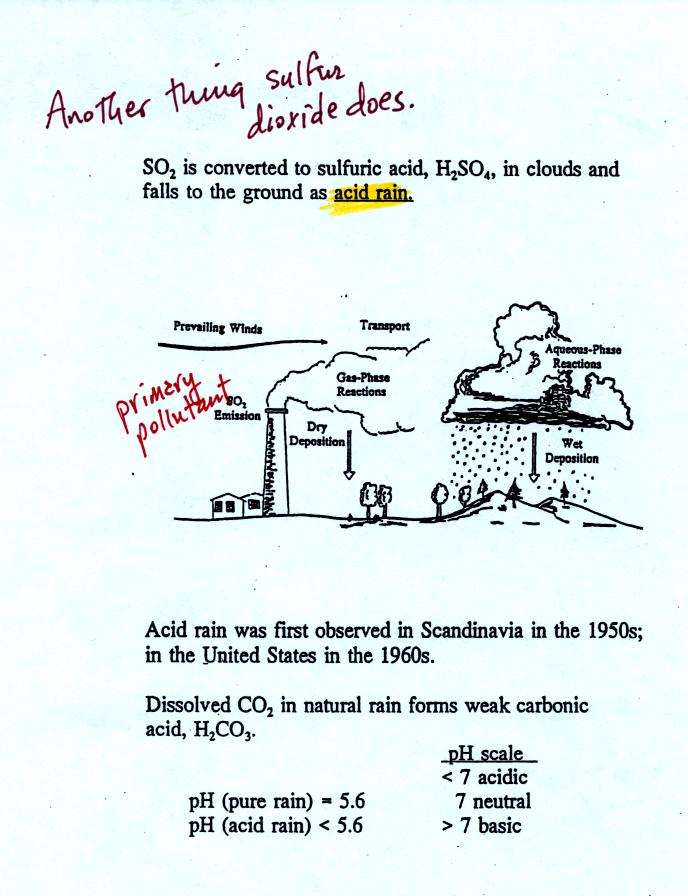 Another thing sulfur
dioxide does.
SO₂ is converted to sulfuric acid, H₂SO₄, in clouds and
falls to the ground as acid rain.
Prevailing Winds
Transport
Aqueous-Phase
Reactions
Gas-Phase
Reactions
primary
pollutant
SO₂
Emission
Dry
Deposition
Wet
Deposition
Acid rain was first observed in Scandinavia in the 1950s;
in the United States in the 1960s.
Dissolved CO₂ in natural rain forms weak carbonic
acid, H₂CO₃.
pH scale
< 7 acidic
pH (pure rain) = 5.6 7 neutral
pH (acid rain) < 5.6 > 7 basic